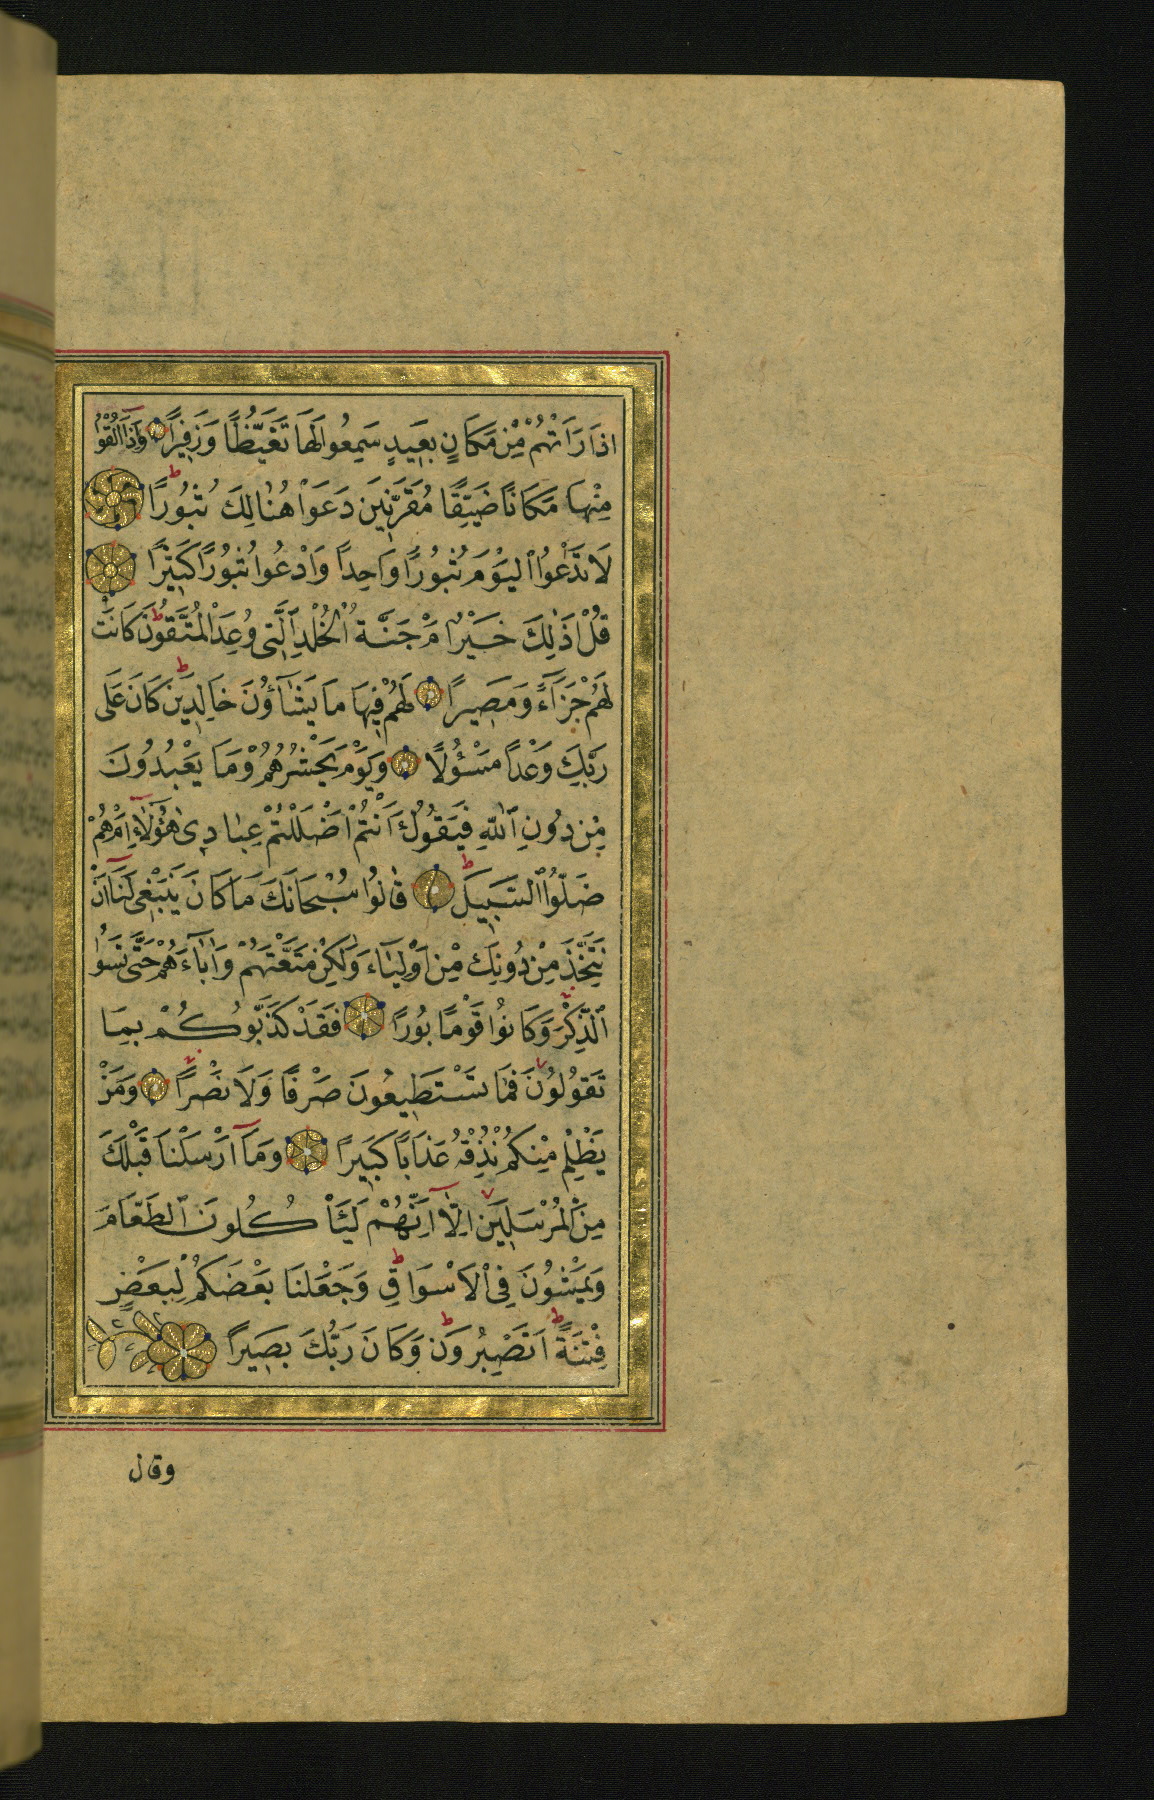 اِذَا رَاَتْهُمْ مِنْ مَكَانٍ بَعِيدٍ سَمِعُوا لَهَا تَغَيُّظًا وَزَفِيرًا وَاِذَٓا اُلْقُوا
مِنْهَا مَكَانًا ضَيِّقًا مُقَرَّنِينَ دَعَوْا هُنَالِكَ ثُبُورًا
لَا تَدْعُوا الْيَوْمَ ثُبُورًا وَاحِدًا وَادْعُوا ثُبُورًا كَثِيرًا
قُلْ اَذٰلِكَ خَيْرٌ اَمْ جَنَّةُ الْخُلْدِ الَّتِى وُعِدَ الْمُتَّقُونَ كَانَتْ
لَهُمْ جَزَآءً وَمَصِيرًا لَهُمْ فِيهَا مَا يَشَآؤُنَ خَالِدِينَ كَانَ عَلٰى
رَبِّكَ وَعْدًا مَسْؤُلًا وَيَوْمَ يَحْشُرُهُمْ وَمَا يَعْبُدُونَ
مِنْ دُونِ اللّٰهِ فَيَقُولُ ءَاَنْتُمْ اَضْلَلْتُمْ عِبَادِى هٰٓؤُلَآءِ اَمْ هُمْ
ضَلُّوا السَّبِيلَ قَالُوا سُبْحَانَكَ مَا كَانَ يَنْبَغِى لَنَٓا اَنْ
نَتَّخِذَ مِنْ دُونِكَ مِنْ اَوْلِيَآءَ وَلٰكِنْ مَتَّعْتَهُمْ وَاٰبَآءَهُمْ حَتّٰى نَسُوا
الذِّكْرَ وَكَانُوا قَوْمًا بُورًا فَقَدْ كَذَّبُوكُمْ بِمَا
تَقُولُونَ فَمَا تَسْتَطِيعُونَ صَرْفًا وَلَا نَصْرًا وَمَنْ
يَظْلِمْ مِنْكُمْ نُذِقْهُ عَذَابًا كَبِيرًا وَمَٓا اَرْسَلْنَا قَبْلَكَ
مِنَ الْمُرْسَلِينَ اِلَّٓا اِنَّهُمْ لَيَأْكُلُونَ الطَّعَامَ
وَيَمْشُونَ فِى الْاَسْوَاقِ وَجَعَلْنَا بَعْضَكُمْ لِبَعْضٍ
فِتْنَةً اَتَصْبِرُونَ وَكَانَ رَبُّكَ بَصِيرًا
وقال